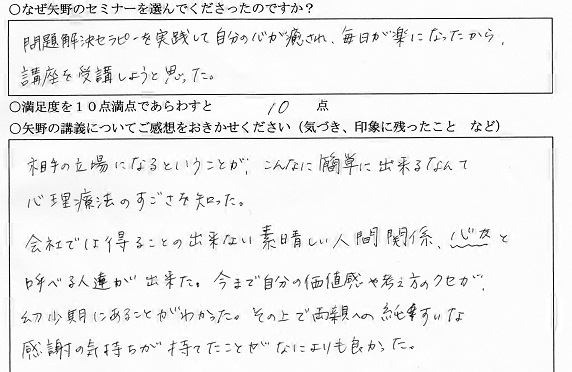 ○なぜ矢野のセミナーを選んでくださったのですか？
問題解決セラピーを実践して自分の心が癒され、毎日が楽になったから、
講座を受講しようと思った。
○満足度を１０点満点であらわすと 10 点
○矢野の講義についてご感想をおきかせください（気づき、印象に残ったこと など）
相手の立場になるということが、こんなに簡単に出来るなんて
心理療法のすごさを知った。
会社では得ることの出来ない素晴しい人間関係、心友と
呼べる人達が出来た。今まで自分の価値感や考え方のクセが、
幼少期にあることがわかった。その上で両親への純粋な
感謝の気持ちが持てたことがなによりも良かった。